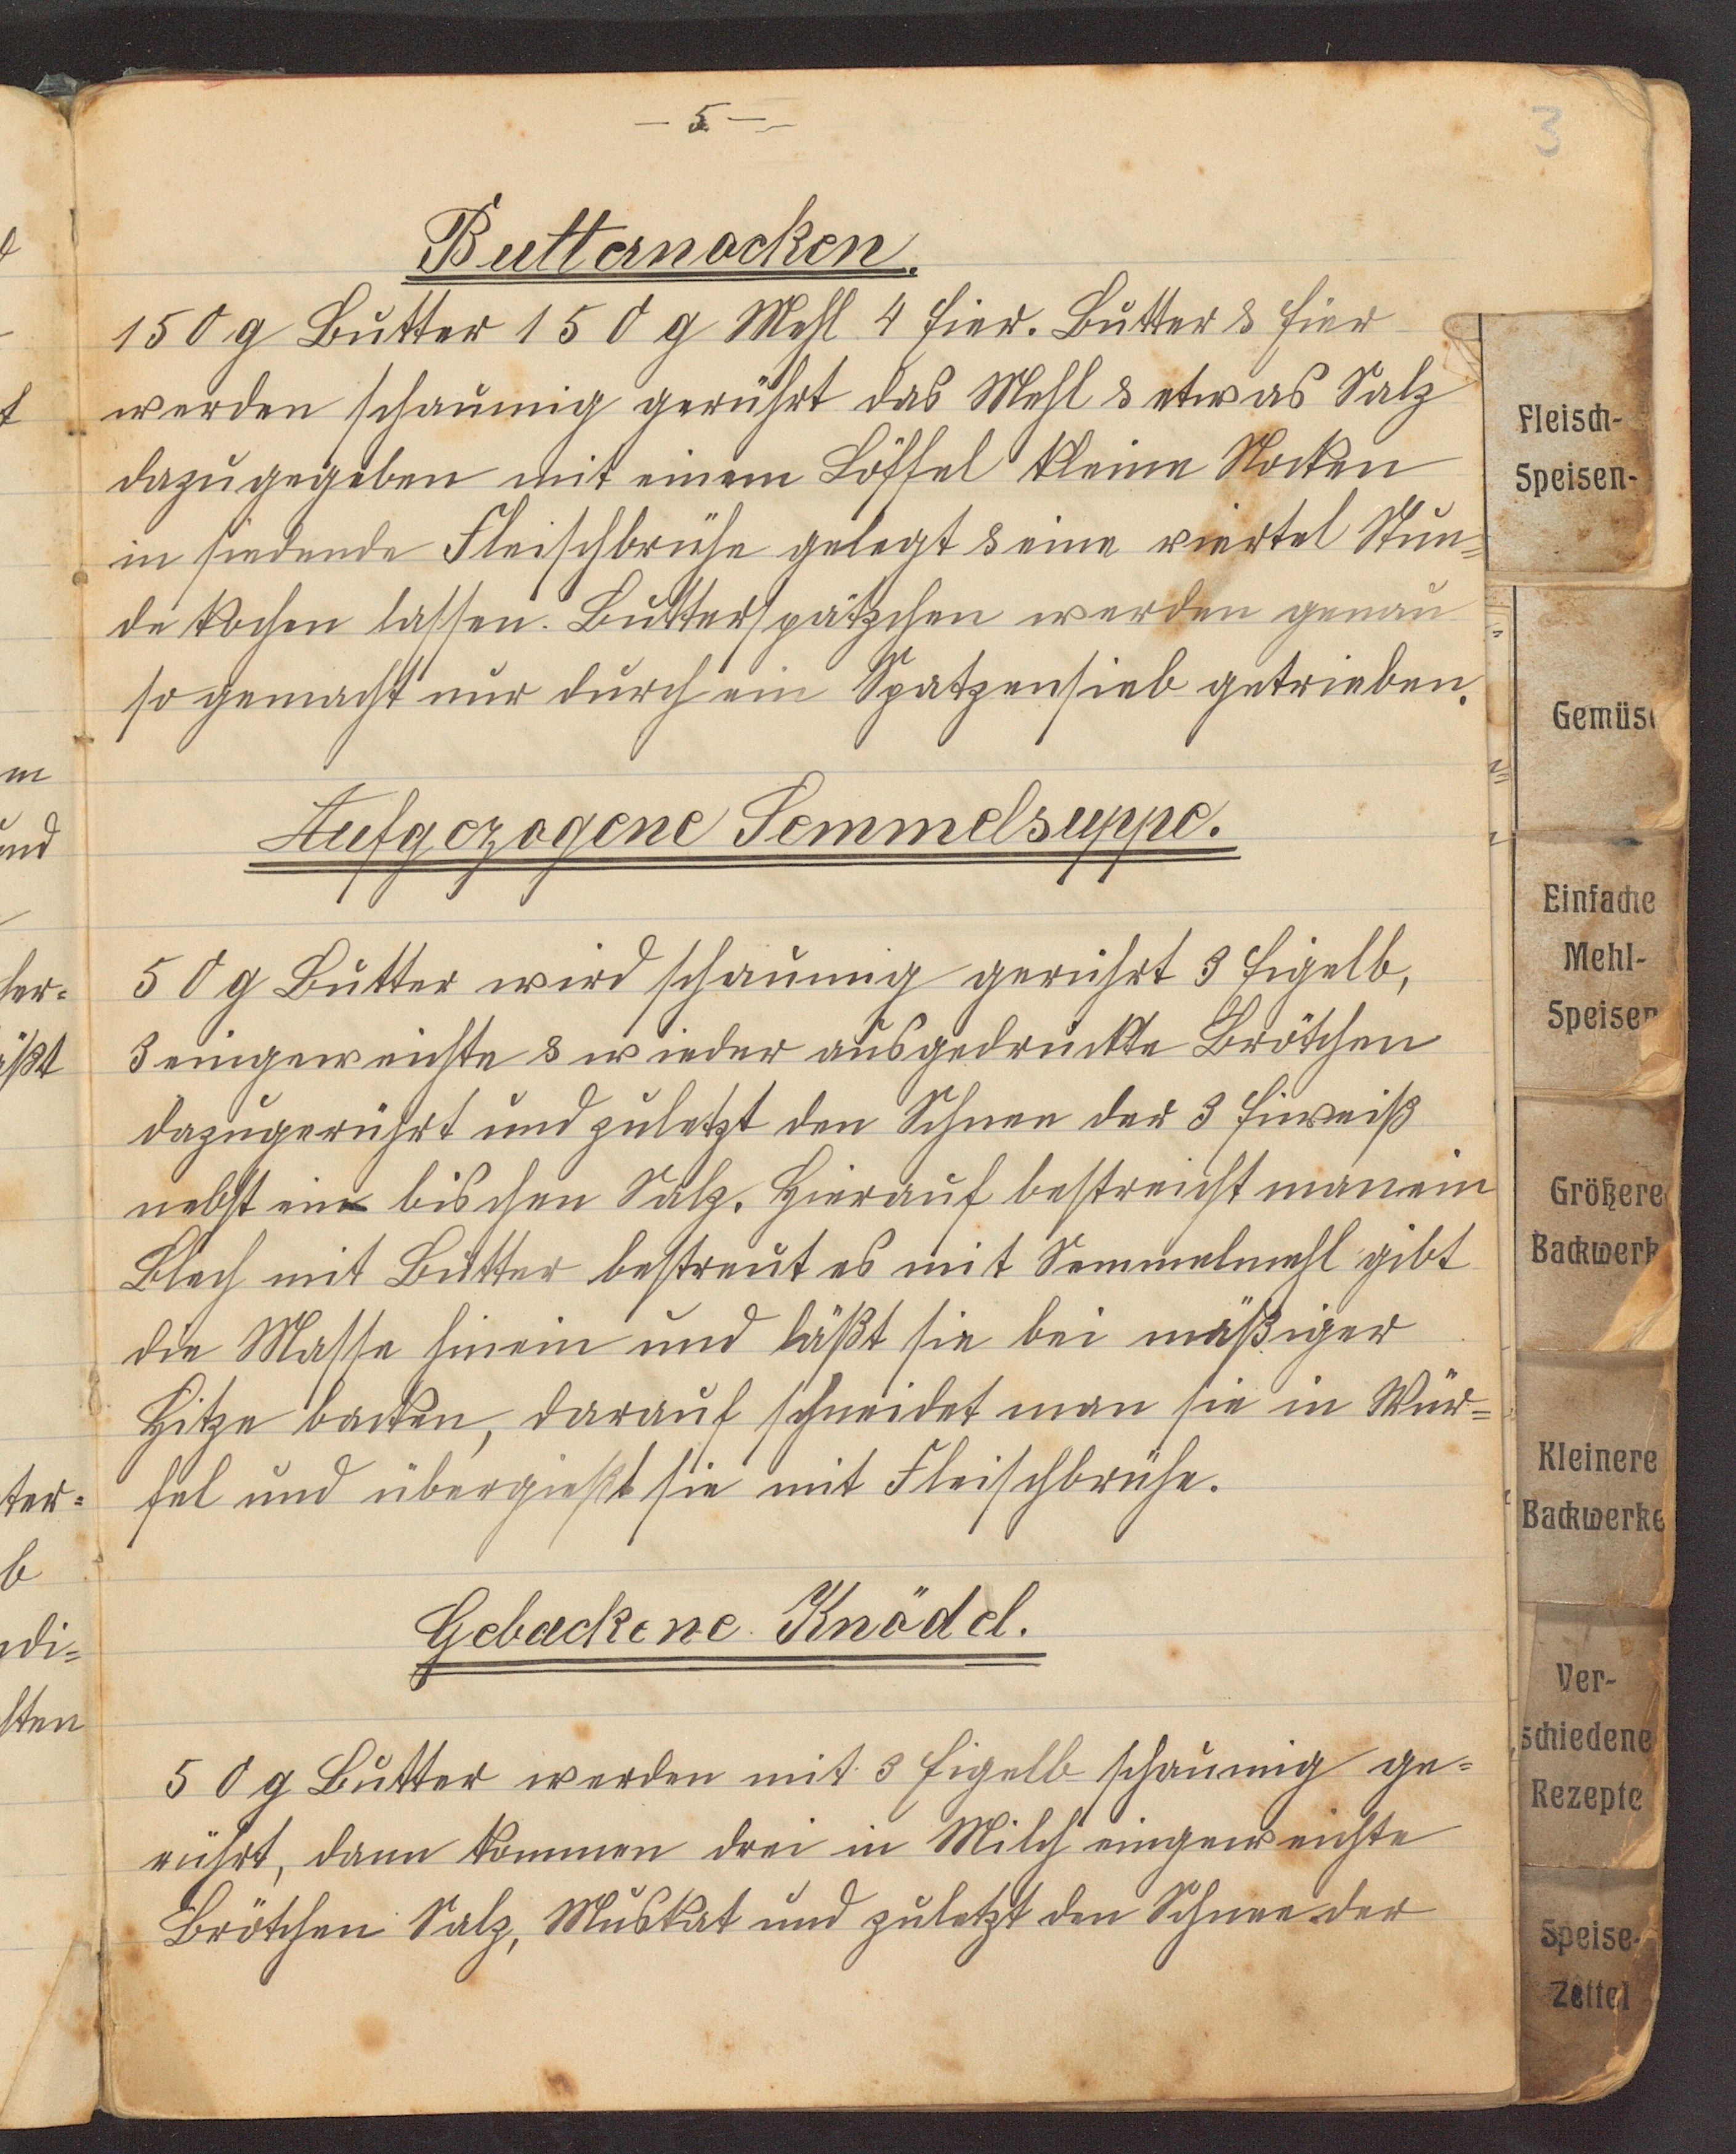 - 5 -
3
Butternocken.
150 g Butter 150 g Mehl 4 Eier. Butter & Eier
werden schaumig gerührt das Mehl & etwas Salz
dazugegeben mit einem Löffel kleine Nocken
in siedende Fleischbrühe gelegt & eine viertel Stun=
de kochen lassen. Butterspätzchen werden genau
so gemacht nur durch ein Spatzensieb getrieben.
Aufgezogene Semmelsuppe.
50 g Butter wird schaumig gerührt 3 Eigelb,
3 eingeweichte & wieder ausgedrückte Brötchen
dazugerührt und zuletzt den Schnee der 3 Eiweiß
nebst ein bischen Salz. Hierauf bestreicht man ein
Blech mit Butter bestreut es mit Semmelmehl gibt
die Masse hinein und läßt sie bei mäßiger
Hitze backen, darauf schneidet man sie in Wür=
fel und übergießt sie mit Fleischbrühe.
Gebackene Knödel.
50 g Butter werden mit 3 Eigelb schaumig ge=
rührt, dann kommen drei in Milch eingeweichte
Brötchen Salz, Muskat und zuletzt den Schnee der
Fleisch-
Speisen-
Gemüse
Einfache
Mehl-
Speisen
Größere
Backwerk
Kleinere
Backwerke
Ver-
schiedene
Rezepte
Speise-
Zettel